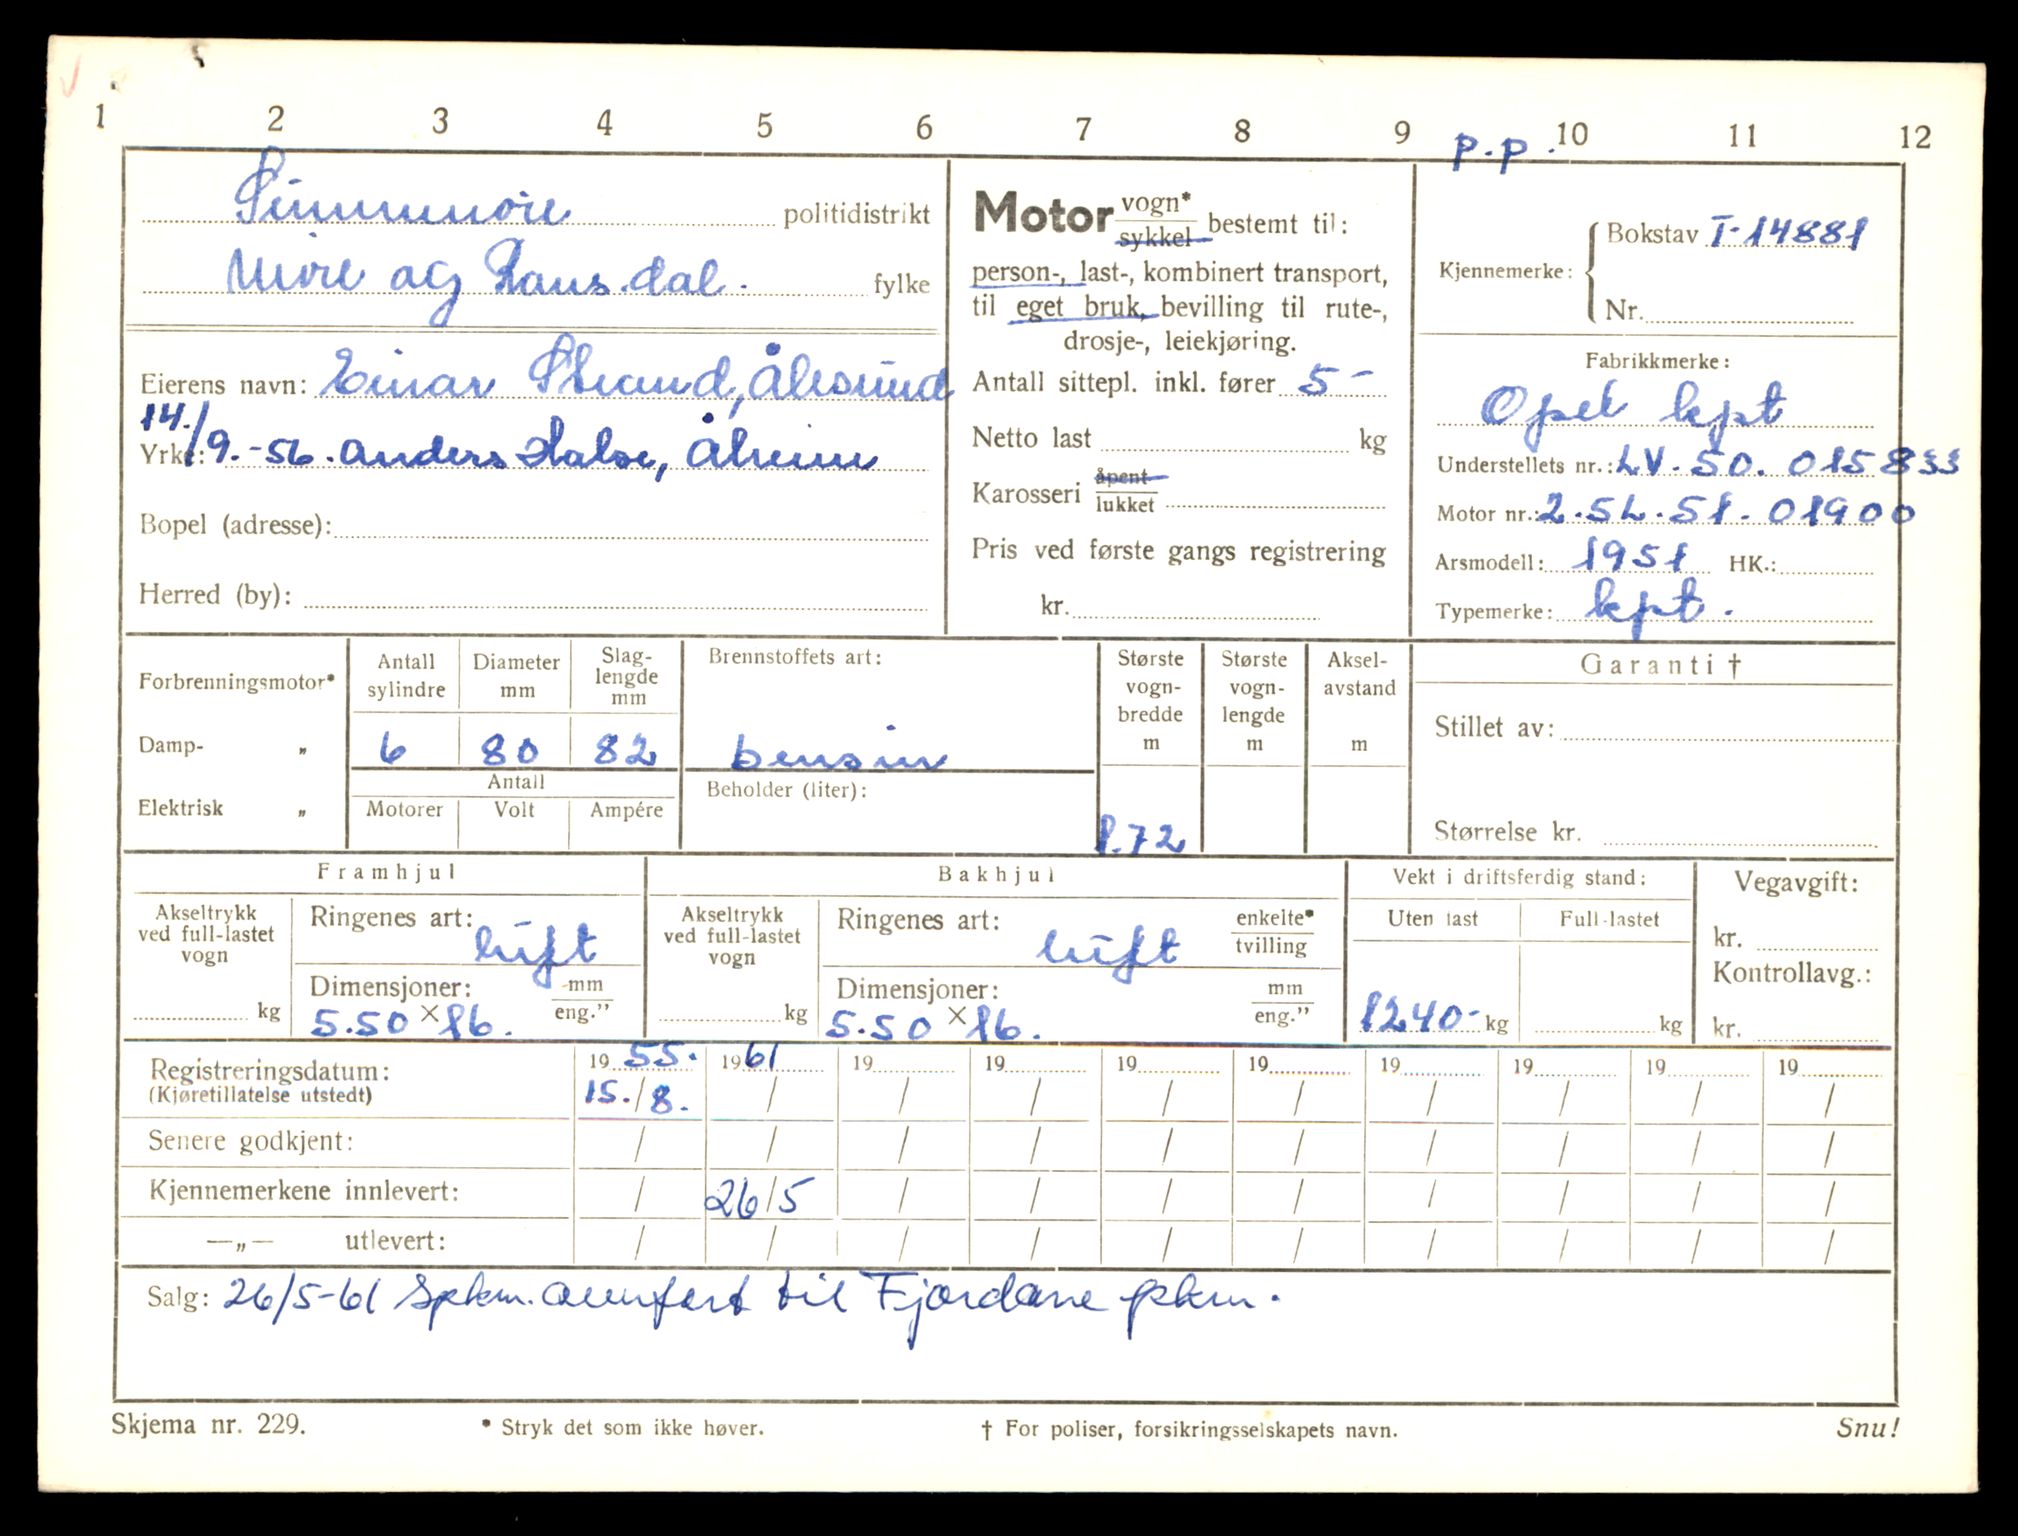 1 2 3 4 5 6 7 8 9 10 11 12
p.p.
Sunnmøre politidistrikt
Møre og Romsdal. fylke
Eierens navn: Einar Strand, Ålesund
14./9.-56. Anders Halse, Åheim
Yrke:
Bopel (adresse):
Herred (by):
Motor vogn* / sykkel bestemt til:
person-, last-, kombinert transport,
til eget bruk, bevilling til rute-,
drosje-, leiekjøring.
Antall sittepl. inkl. fører 5-
Netto last kg
Karosseri åpent / lukket
Pris ved første gangs registrering
kr.
Kjennemerke: Bokstav T-14881
Nr.
Fabrikkmerke:
Opel kpt
Understellets nr.: LV.50.015833
Motor nr.: 2.5L.51.01900
Arsmodell: 1951 HK.:
Typemerke: kpt.
Forbrenningsmotor*
Damp- „
Elektrisk „
Antall sylindre
6
Diameter mm
80
Slag-lengde mm
82
Antall
Motorer Volt Ampére
Brennstoffets art:
bensin
Beholder (liter):
Største vogn-bredde m
1.72
Største vogn-lengde m
Aksel-avstand m
Garanti †
Stillet av:
Størrelse kr.
Framhjul
Akseltrykk ved full-lastet vogn
kg
Ringenes art: luft
Dimensjoner: mm / eng."
5.50 × 16.
Bakhjul
Akseltrykk ved full-lastet vogn
kg
Ringenes art: luft enkelte* / tvilling
Dimensjoner: mm / eng."
5.50 × 16.
Vekt i driftsferdig stand:
Uten last Full-lastet
1240- kg kg
Vegavgift:
kr.
Kontrollavg.:
kr.
Registreringsdatum: 19 55. 19 61 19 19 19 19 19 19 19 19
(Kjøretillatelse utstedt) 15./8. / / / / / / / / /
Senere godkjent: / / / / / / / / / /
Kjennemerkene innlevert: / 26/5 / / / / / / / /
—„— utlevert: / / / / / / / / / /
Salg: 26/5-61 Spkm. overført til Fjordane pkm.
Skjema nr. 229. * Stryk det som ikke høver. † For poliser, forsikringsselskapets navn. Snu!